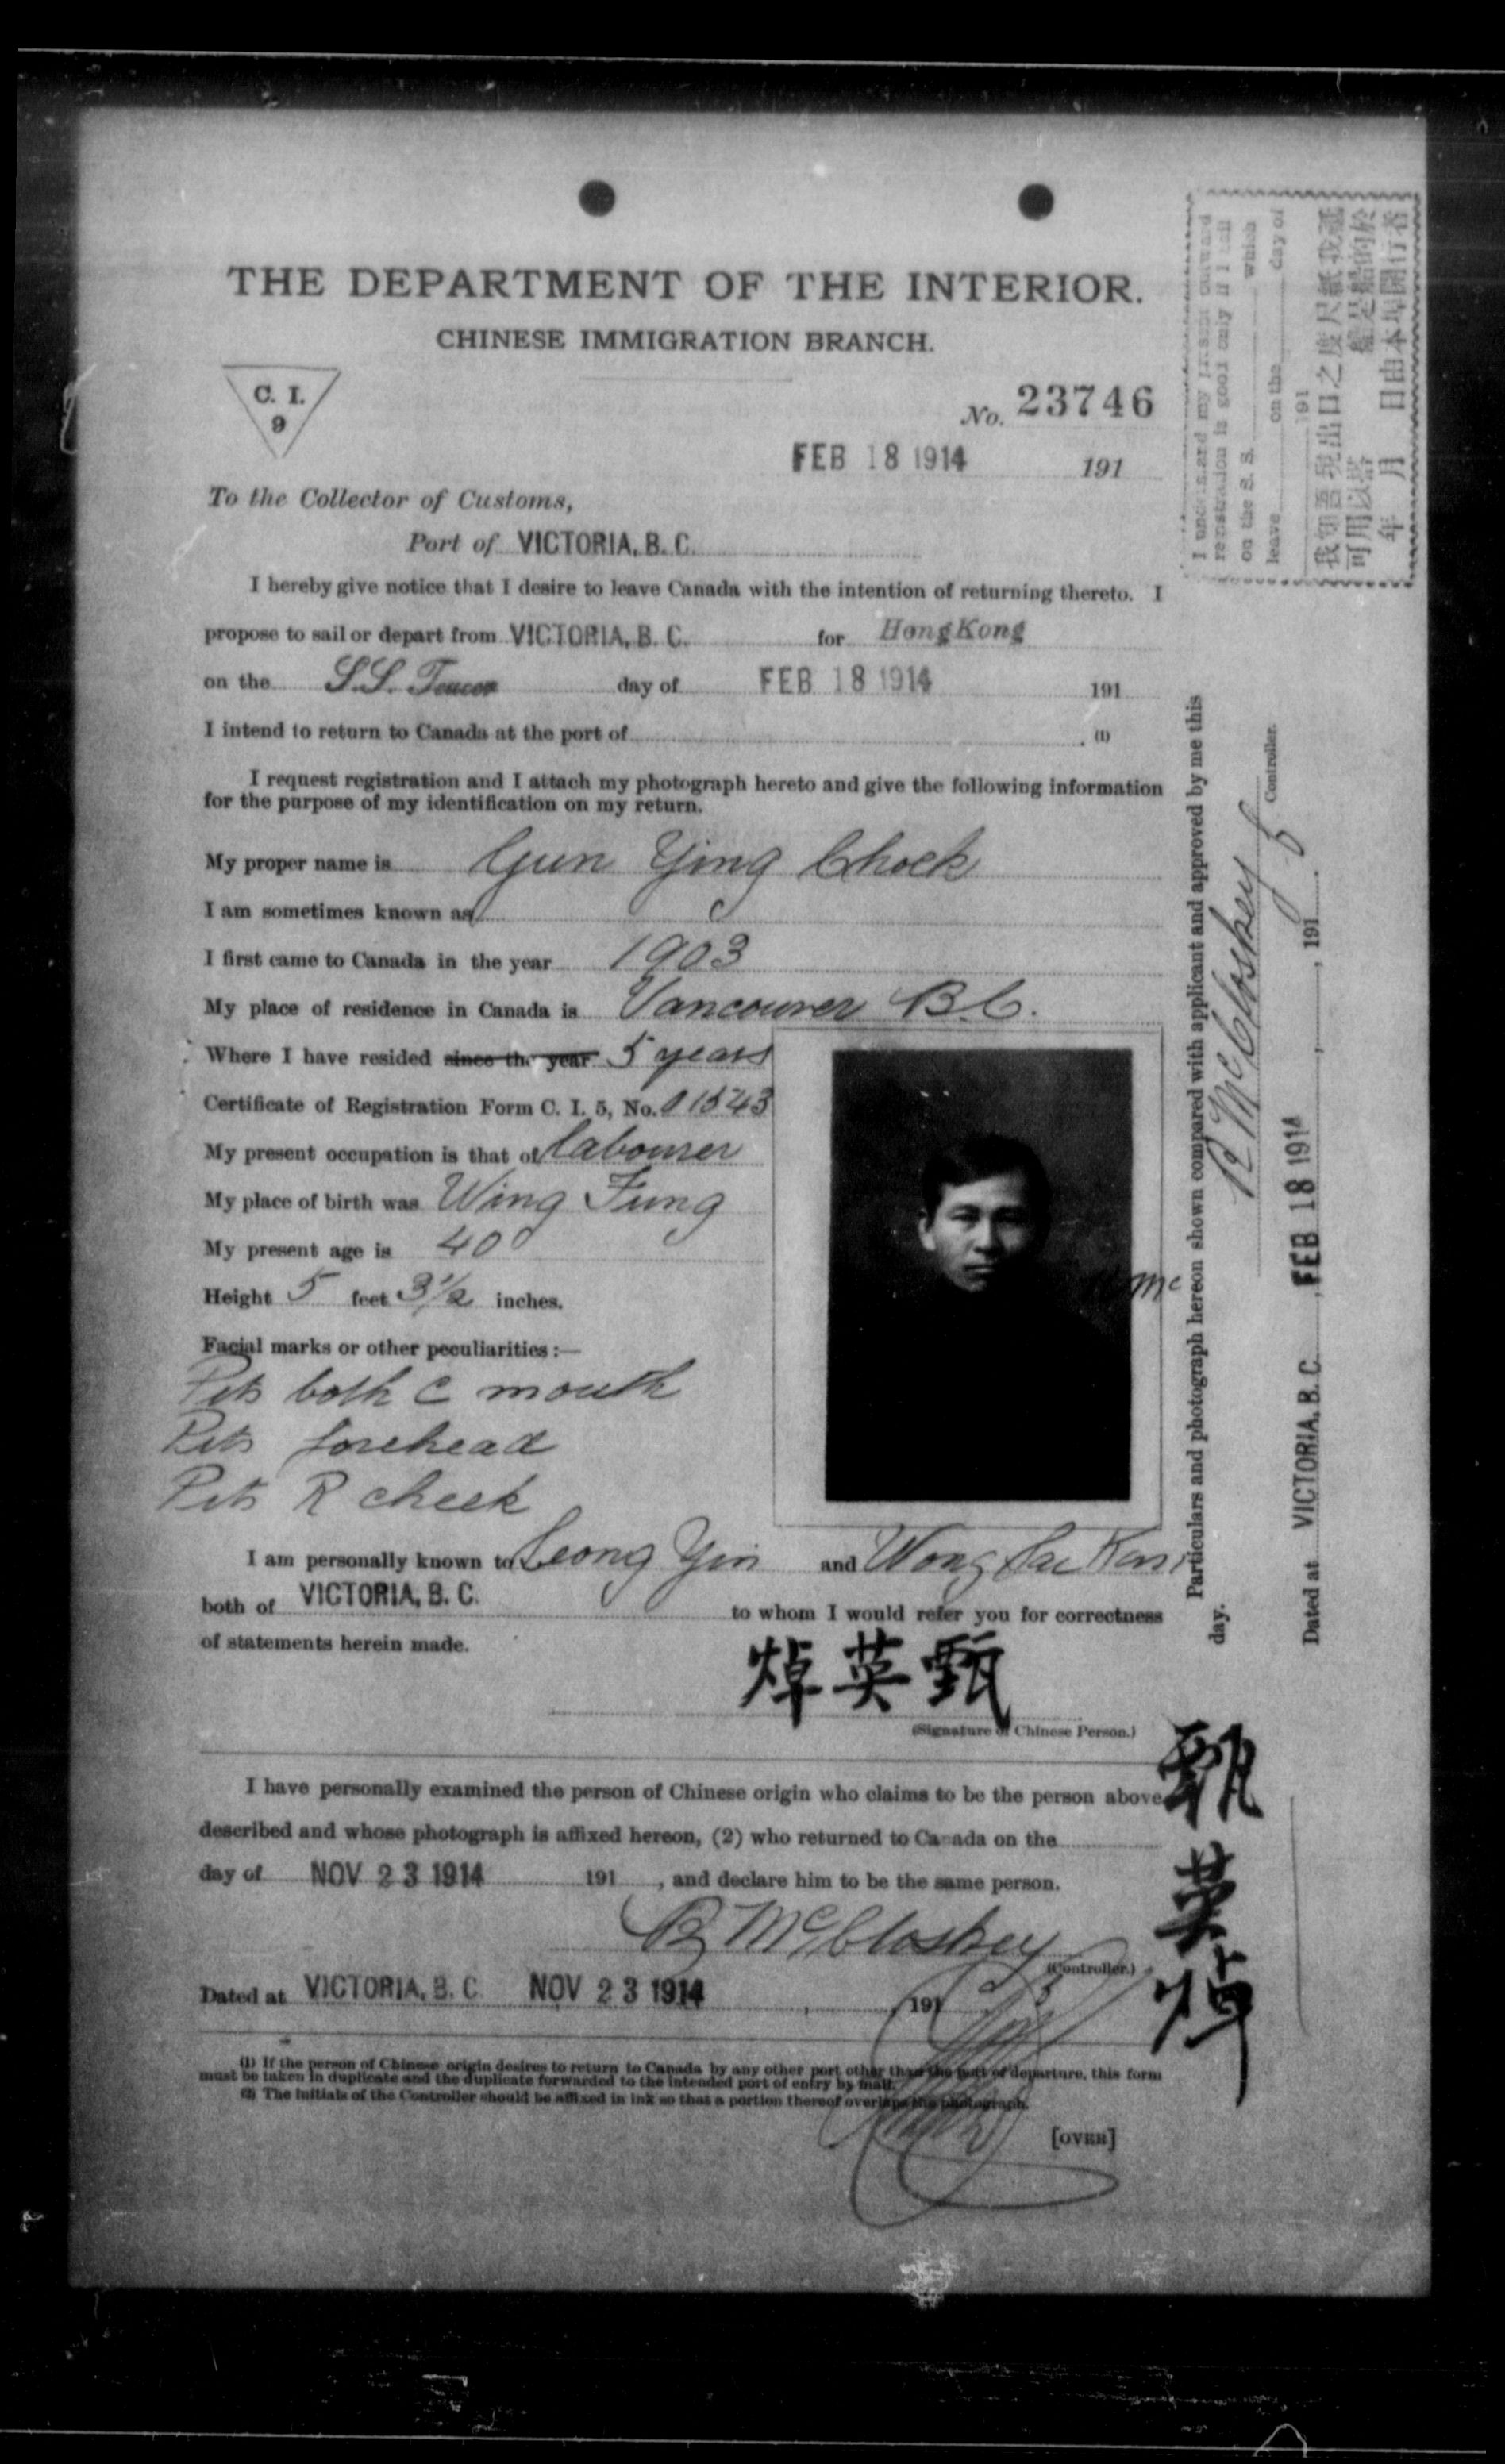 THE DEPARTMENT OF THE INTERIOR.
CHINESE IMMIGRATION BRANCH.
C. I.
9
No. 23746
FEB 18 1914 191
To the Collector of Customs,
Port of VICTORIA, B. C.
I hereby give notice that I desire to leave Canada with the intention of returning thereto. I
propose to sail or depart from VICTORIA, B. C. for HongKong
on the S.S. day of FEB 18 1914 191
I intend to return to Canada at the port of . (1)
I request registration and I attach my photograph hereto and give the following information
for the purpose of my identification on my return.
My proper name is Gun Ying Chock
I am sometimes known as
I first came to Canada in the year 1903
My place of residence in Canada is Vancouver B.C.
Where I have resided since the year 5 years
Certificate of Registration Form C. I. 5, No. 01543
My present occupation is that of labourer
My place of birth was Wing Fung
My present age is 40
Height 5 feet 3 1/2 inches.
Facial marks or other peculiarities :—
Pits both C mouth
Pits forehead
Pits R cheek
Mc
I am personally known to Leong Yin and Wong
both of VICTORIA, B. C. to whom I would refer you for correctness
of statements herein made.
焯英甄
(Signature of Chinese Person.)
I have personally examined the person of Chinese origin who claims to be the person above
described and whose photograph is affixed hereon, (2) who returned to Canada on the
day of NOV 23 1914 191 , and declare him to be the same person.
B McCloskey
(Controller.)
Dated at VICTORIA, B. C. NOV 23 1914 , 191
(1) If the person of Chinese origin desires to return to Canada by any other port other than the port of departure, this form
must be taken in duplicate and the duplicate forwarded to the intended port of entry by mail.
(2) The initials of the Controller should be affixed in ink so that a portion thereof overlaps the photograph.
[OVER]
I understand my present outward
registration is good only if I sail
on the S. S. which
leave on the day of
191
我知吾現出口之度尺紙我
可用以搭 船的於
年 月 日由本埠開行者
Particulars and photograph hereon shown compared with applicant and approved by me this
day.
B McCloskey
Controller.
Dated at VICTORIA, B. C. , FEB 18 1914 , 191
甄
英
焯